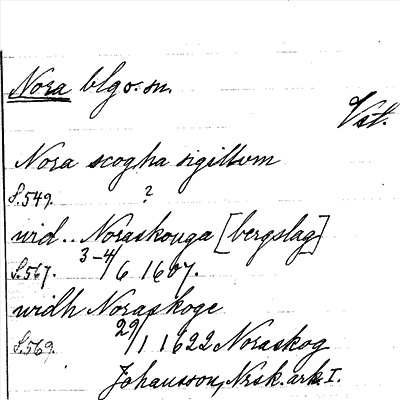 Nora blgo. sn.
Vstl.
Nora scogha sigillvm
S. 549. ?
wid.. Noraskouga [bergslag]
S. 567. 3-4/6 1607.
widh Noraskoge
S. 569. 29/1 1622 Noraskog
Johansson, Nrsk. ark. I.